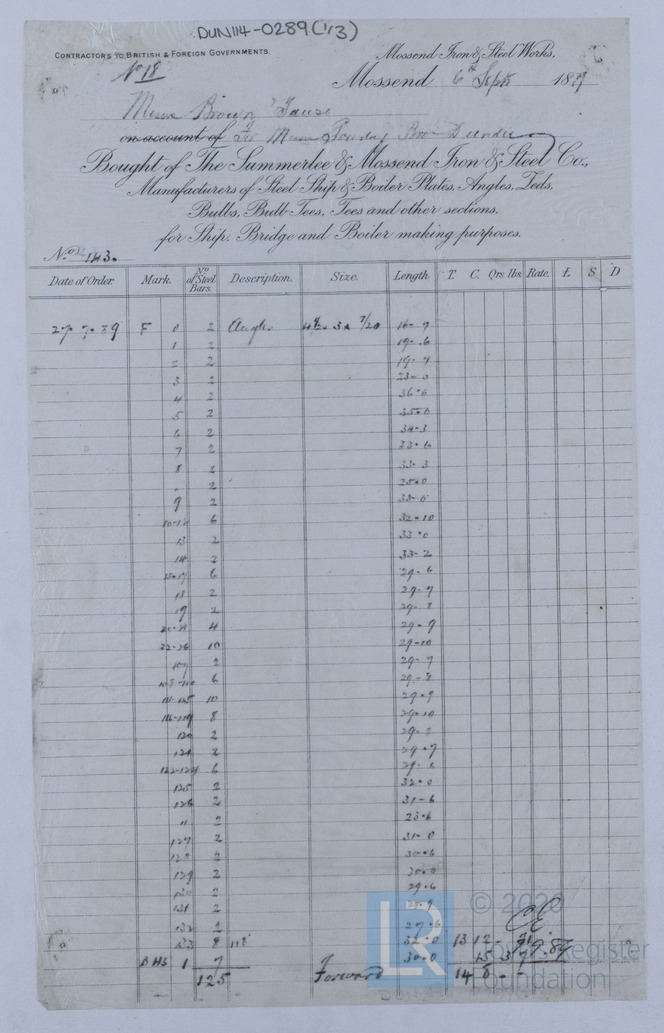 DUN114-0289(1/3)
CONTRACTORS TO BRITISH & FOREIGN GOVERNMENTS.
Mossend Iron & Steel Works.
No 18
Mossend 6th Sept 1889
Messrs Brown
on account of For Messrs Bros Dundee
Bought of The Summerlee & Mossend Iron & Steel Co.,
Manufacturers of Steel Ship & Boiler Plates, Angles, Zeds,
Bulbs, Bulb Tees, Tees and other sections.
for Ship, Bridge and Boiler making purposes.
No. 143.
Date of Order. Mark. No of Steel Bars. Description. Size. Length. T. C. Qrs. lbs. Rate. £ S D
27.7.89 F 0 2 Angle 7/20 16-9
1 2 19.6
2 2 19.9
3 2 23-0
4 2 36.0
5 2 35.0
6 2 34-3
7 2 33.6
8 2 33.3
" 2 25.0
9 2 33-0
10-12 6 32-10
13 2 33.0
14 2 33-2
15-17 6 29-6
18 2 29-7
19 2 29-8
4 29-9
22-26 10 29-10
2 29-7
108-110 6 29-8
111-115 10 29-9
116-119 8 29-10
120 2
121 2 29-9
122-124 6
125 2 32-0
126 2 31-6
" 2 23.6
127 2 31-0
128 2 30-6
129 2 30-0
130 2 29-6
131 2
132 2
133 8 32-0 13 12
BHS 1 7 30-0 15
125 Forward 14 8 - -
9.89
LR
© 2020
Lloyd's Register
Foundation